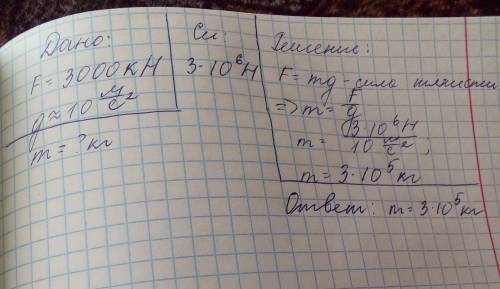 Дано:
F = 3000 кН
g ≈ 10 м/с²
m = ? кг
Си:
3·10⁶Н
Решение:
F = mg - сила тяжести
=> m = F/g
m = 3·10⁶Н / 10 м/с² ;
m = 3·10⁵ кг
Ответ: m = 3·10⁵ кг